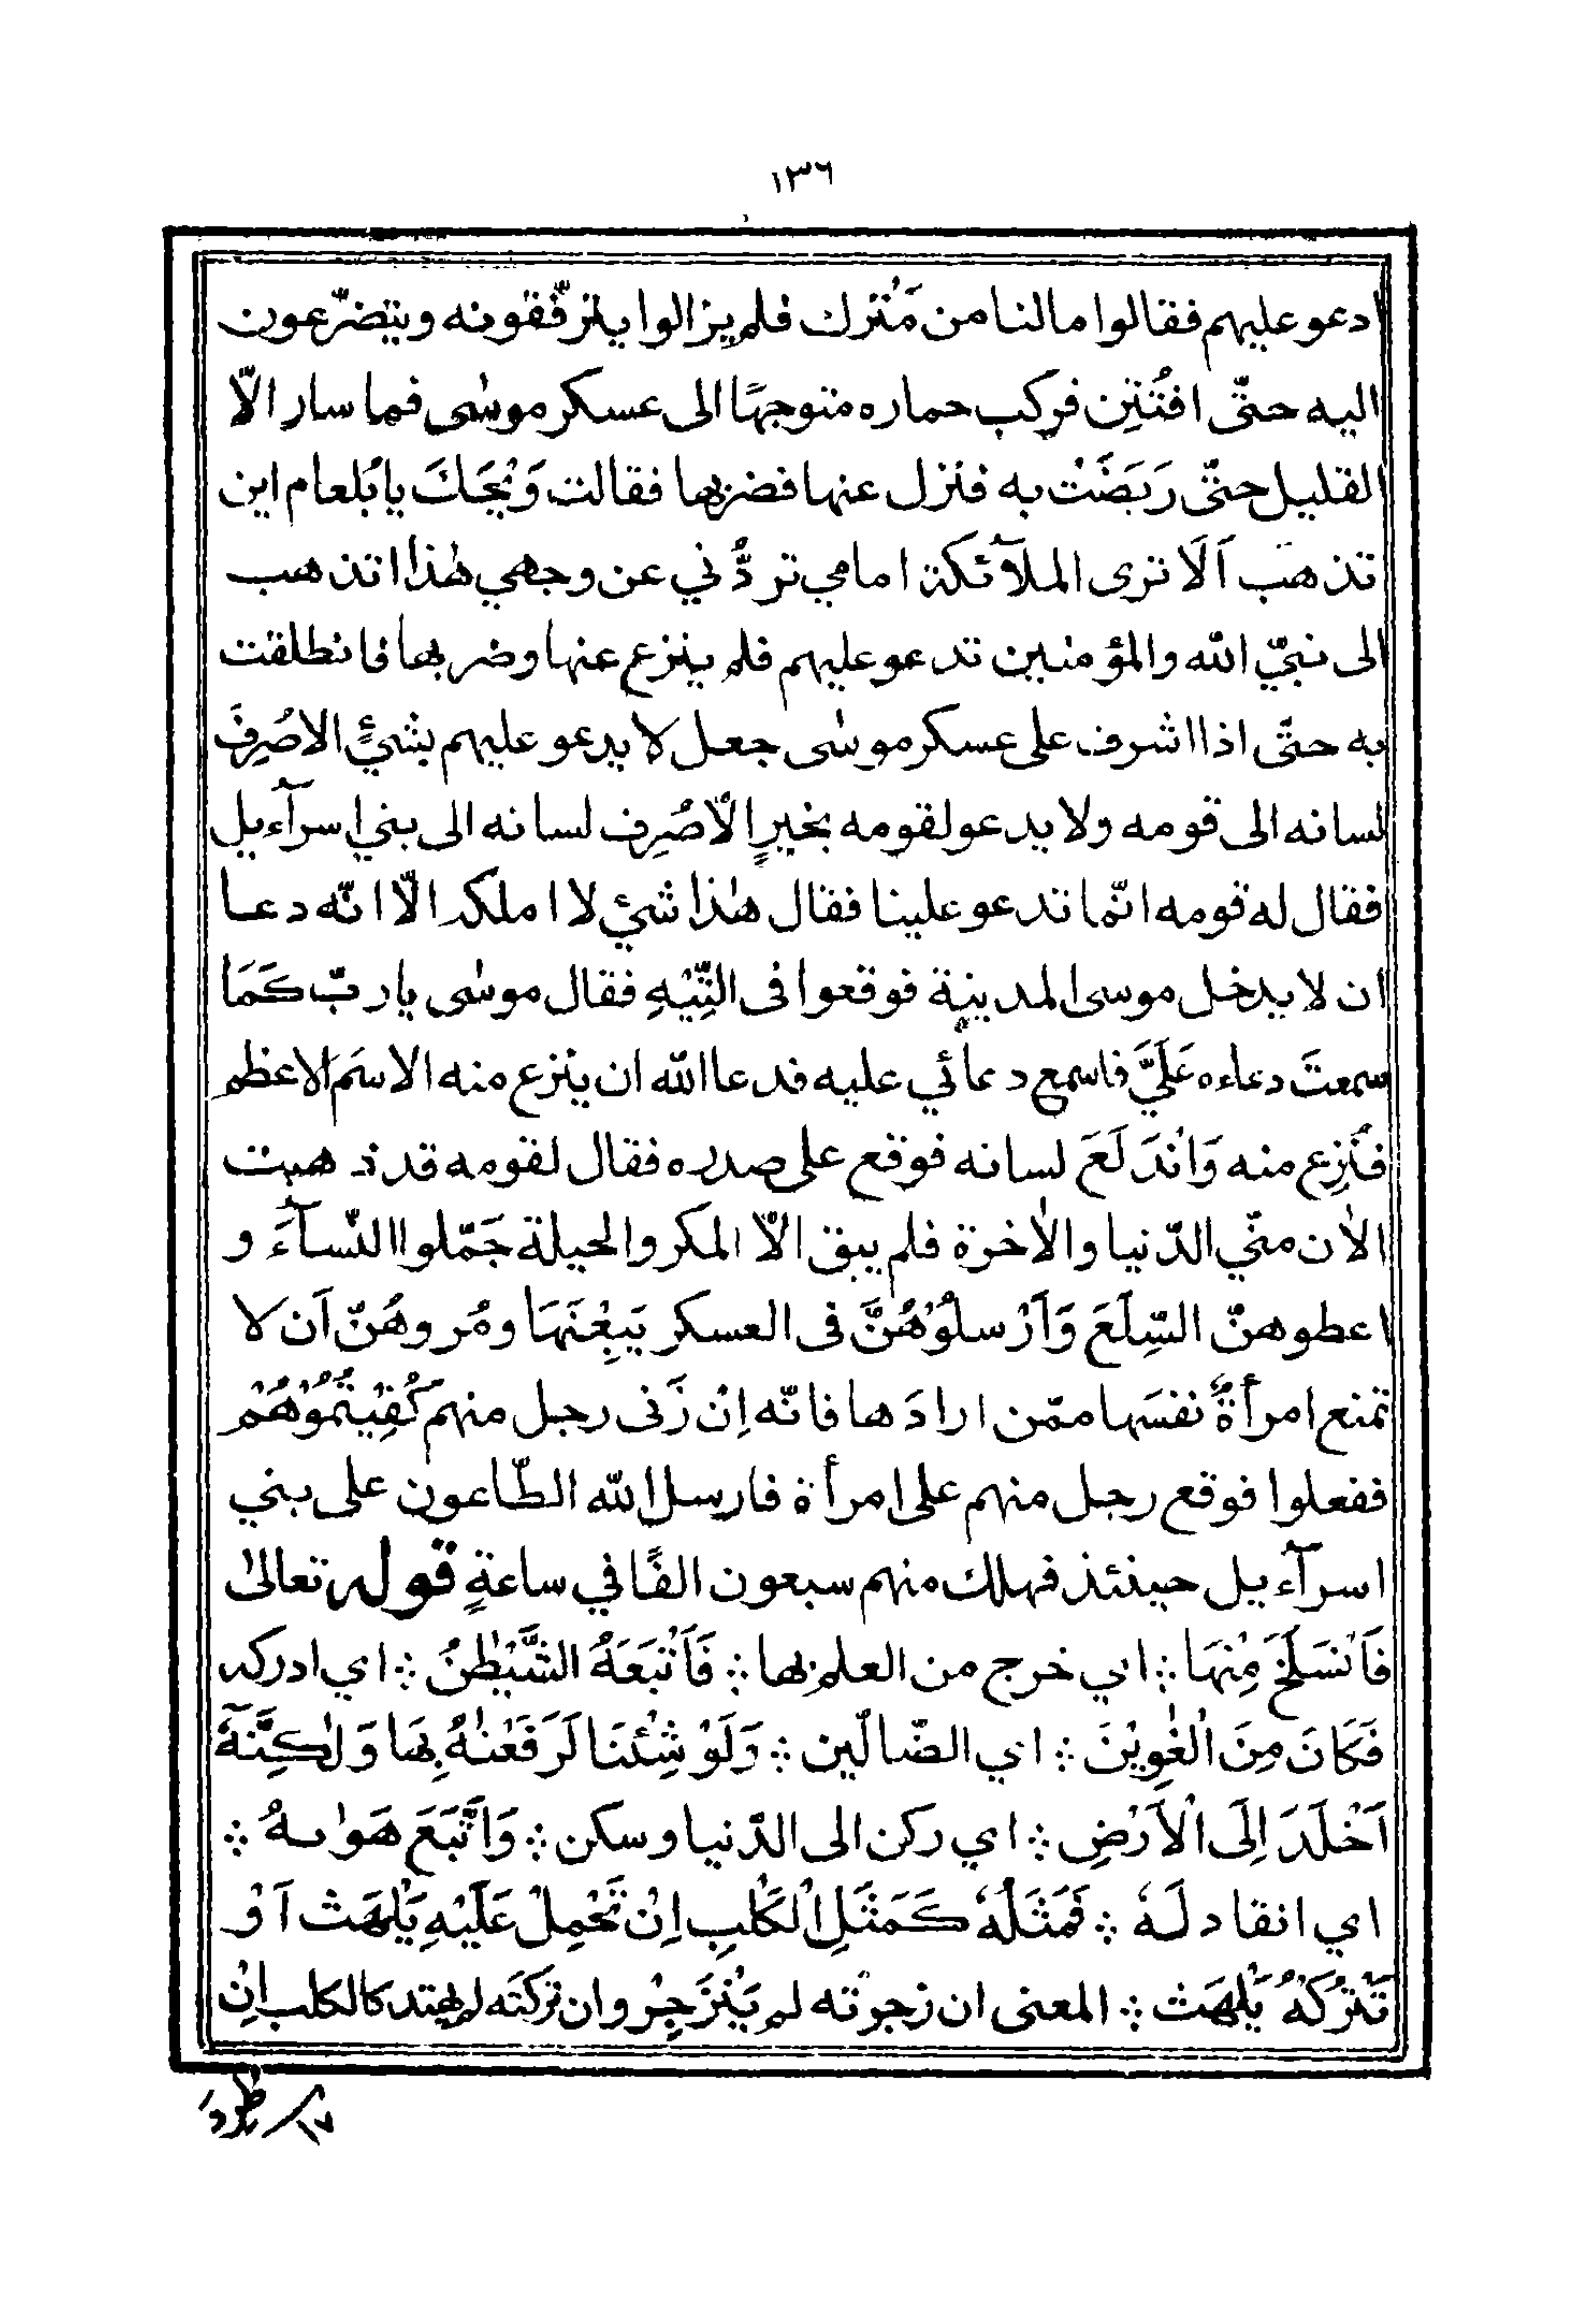 ١٣٦
ادعو عليهم فقالوا مالنا من مُتْرك فلم يزالوا يترفّقونه ويتضرّعون
اليه حتّى افتُتِن فركب حماره متوجهًا الى عسكر موسٰى فما سار الّا
القليل حتّى رَبَضَتْ به فنزل عنها فضربها فقالت وَيْحَكَ يا بَلعام اين
تذهب اَلَا ترى الملآئكة امامي تردُّني عن وجهي هٰذا اتذهب
الى نبيّ الله والمؤمنين تدعو عليهم فلم ينزع عنها وضربها فانطلقت
به حتّى اذا اشرف على عسكر موسٰى جعل لا يدعو عليهم بشيءٍ الا صُرِفَ
لسانه الى قومه ولا يدعو لقومه بخيرٍ الّا صُرِف لسانه الى بني اسرآءيل
فقال له قومه انّما تدعو علينا فقال هٰذا شيء لا املكه الّا انّه دعا
ان لا يدخل موسى المدينة فوقعوا فى التِّيْهِ فقال موسٰى يا ربّ كَمَا
سمعتَ دعاءه عَلَيَّ فاسمع دعائي عليه فدعا الله ان ينزع منه الاسمَ الاعظم
فنُزِع منه وَانْدَلَعَ لسانه فوقع على صدره فقال لقومه قد ذهبت
الاٰن منّي الدّنيا والاٰخرة فلم يبق الّا المكر والحيلة جَمّلوا النّسآءَ و
اعطوهنّ السِّلَعَ وَاَرْسلُوْهُنَّ فى العسكر يَبِعْنَهَا ومُروهُنّ اَن لا
تمنع امرأةٌ نفسَها ممّن ارادَها فانّه اِنْ زَنى رجل منهم كُفِيْتُمُوْهُمْ
ففعلوا فوقع رجل منهم على امرأة فارسل الله الطّاعون على بني
اسرآءيل حينئذ فهلك منهم سبعون الفًا في ساعةٍ قوله تعالىٰ
فَانْسَلَخَ مِنْهَا ؞ اي خرج من العلم بها ؞ فَاَتْبَعَهُ الشَّيْطٰنُ ؞ اي ادركه
فَكَانَ مِنَ الْغٰوِيْنَ ؞ اي الضّالّين ؞ وَلَوْ شِئْنَا لَرَفَعْنٰهُ بِهَا وَلٰكِنَّهٗٓ
اَخْلَدَ اِلَى الْاَرْضِ ؞ اي ركن الى الدّنيا وسكن ؞ وَاتَّبَعَ هَوٰىهُ ؞
اي انقاد لَهٗ ؞ فَمَثَلُهٗ كَمَثَلِ الْكَلْبِ اِنْ تَحْمِلْ عَلَيْهِ يَلْهَث اَوْ
تَتْرُكْهُ يَلْهَث ؞ المعنى ان زجرته لم يَنْزَجِرْ وان تركته لم يهتد كالكلب اِنْ